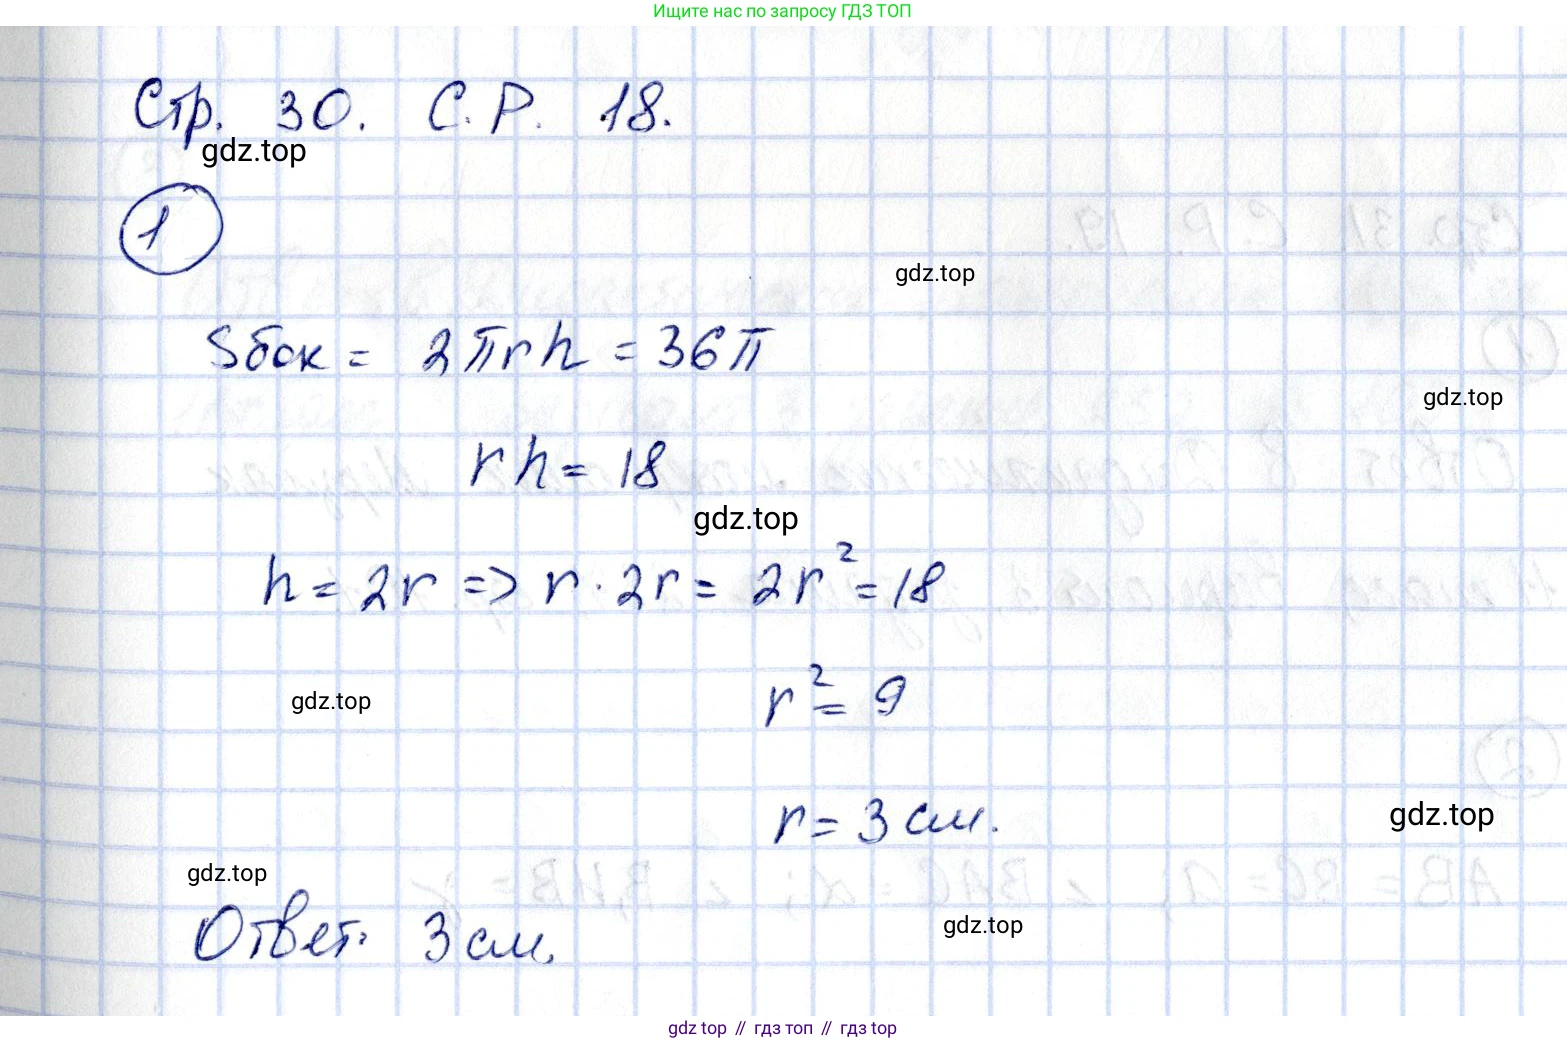 Ищите нас по запросу ГДЗ ТОП
Стр. 30. С.Р. 18.
gdz.top
1
gdz.top
Sбок = 2πrh = 36π
gdz.top
rh = 18
gdz.top
h = 2r => r · 2r = 2r² = 18
gdz.top
r² = 9
r = 3 см.
gdz.top
gdz.top
Ответ: 3 см.
gdz.top
gdz top // гдз топ // гдз top